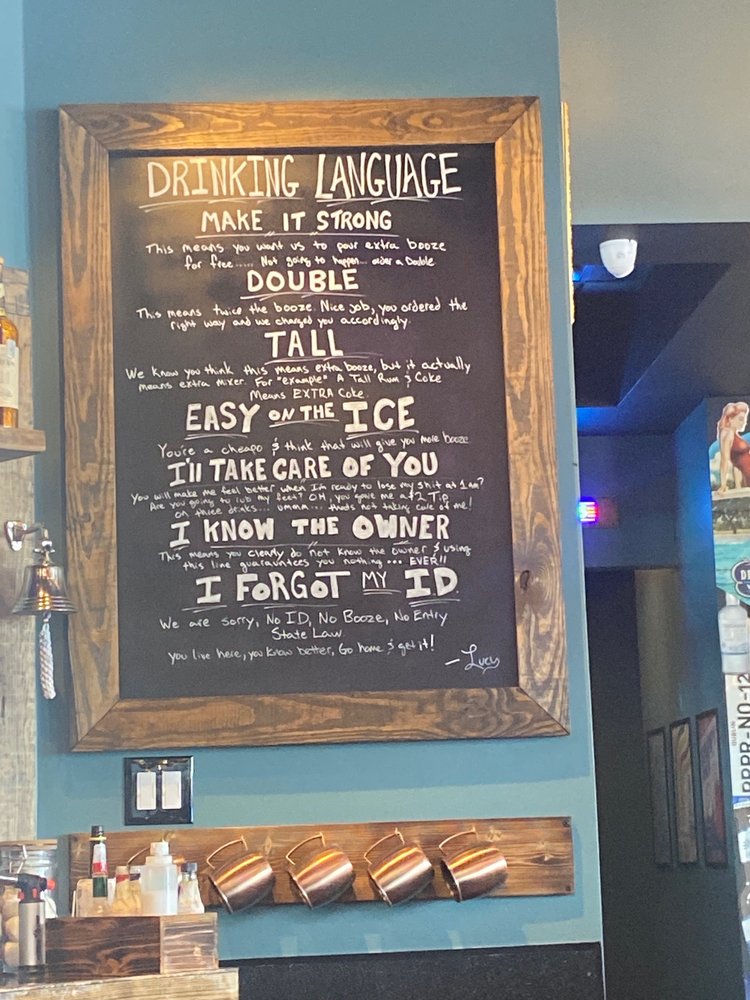 DRINKING LANGUAGE
MAKE IT STRONG
This means you want us to pour extra booze
for free..... Not going to happen... order a Double
DOUBLE
This means twice the booze. Nice job, you ordered the
right way and we charged you accordingly.
TALL
We know you think this means extra booze, but it actually
means extra mixer. For "example" A Tall Rum & Coke
Means EXTRA Coke.
EASY ON THE ICE
You're a cheapo & think that will give you more booze
I'll TAKE CARE OF YOU
You will make me feel better when I'm ready to lose my shit at 1am?
Are you going to rub my feet? OH, you gave me a $2 Tip
on three drinks... ummm... thats not taking care of me!
I KNOW THE OWNER
This means you clearly do not know the owner & using
this line guarauntees you nothing ... EVER!!
I FORGOT MY ID.
We are sorry, No ID, No Booze, No Entry
State Law.
you live here, you know better, Go home & get it!
-Lucy
DUBLIN